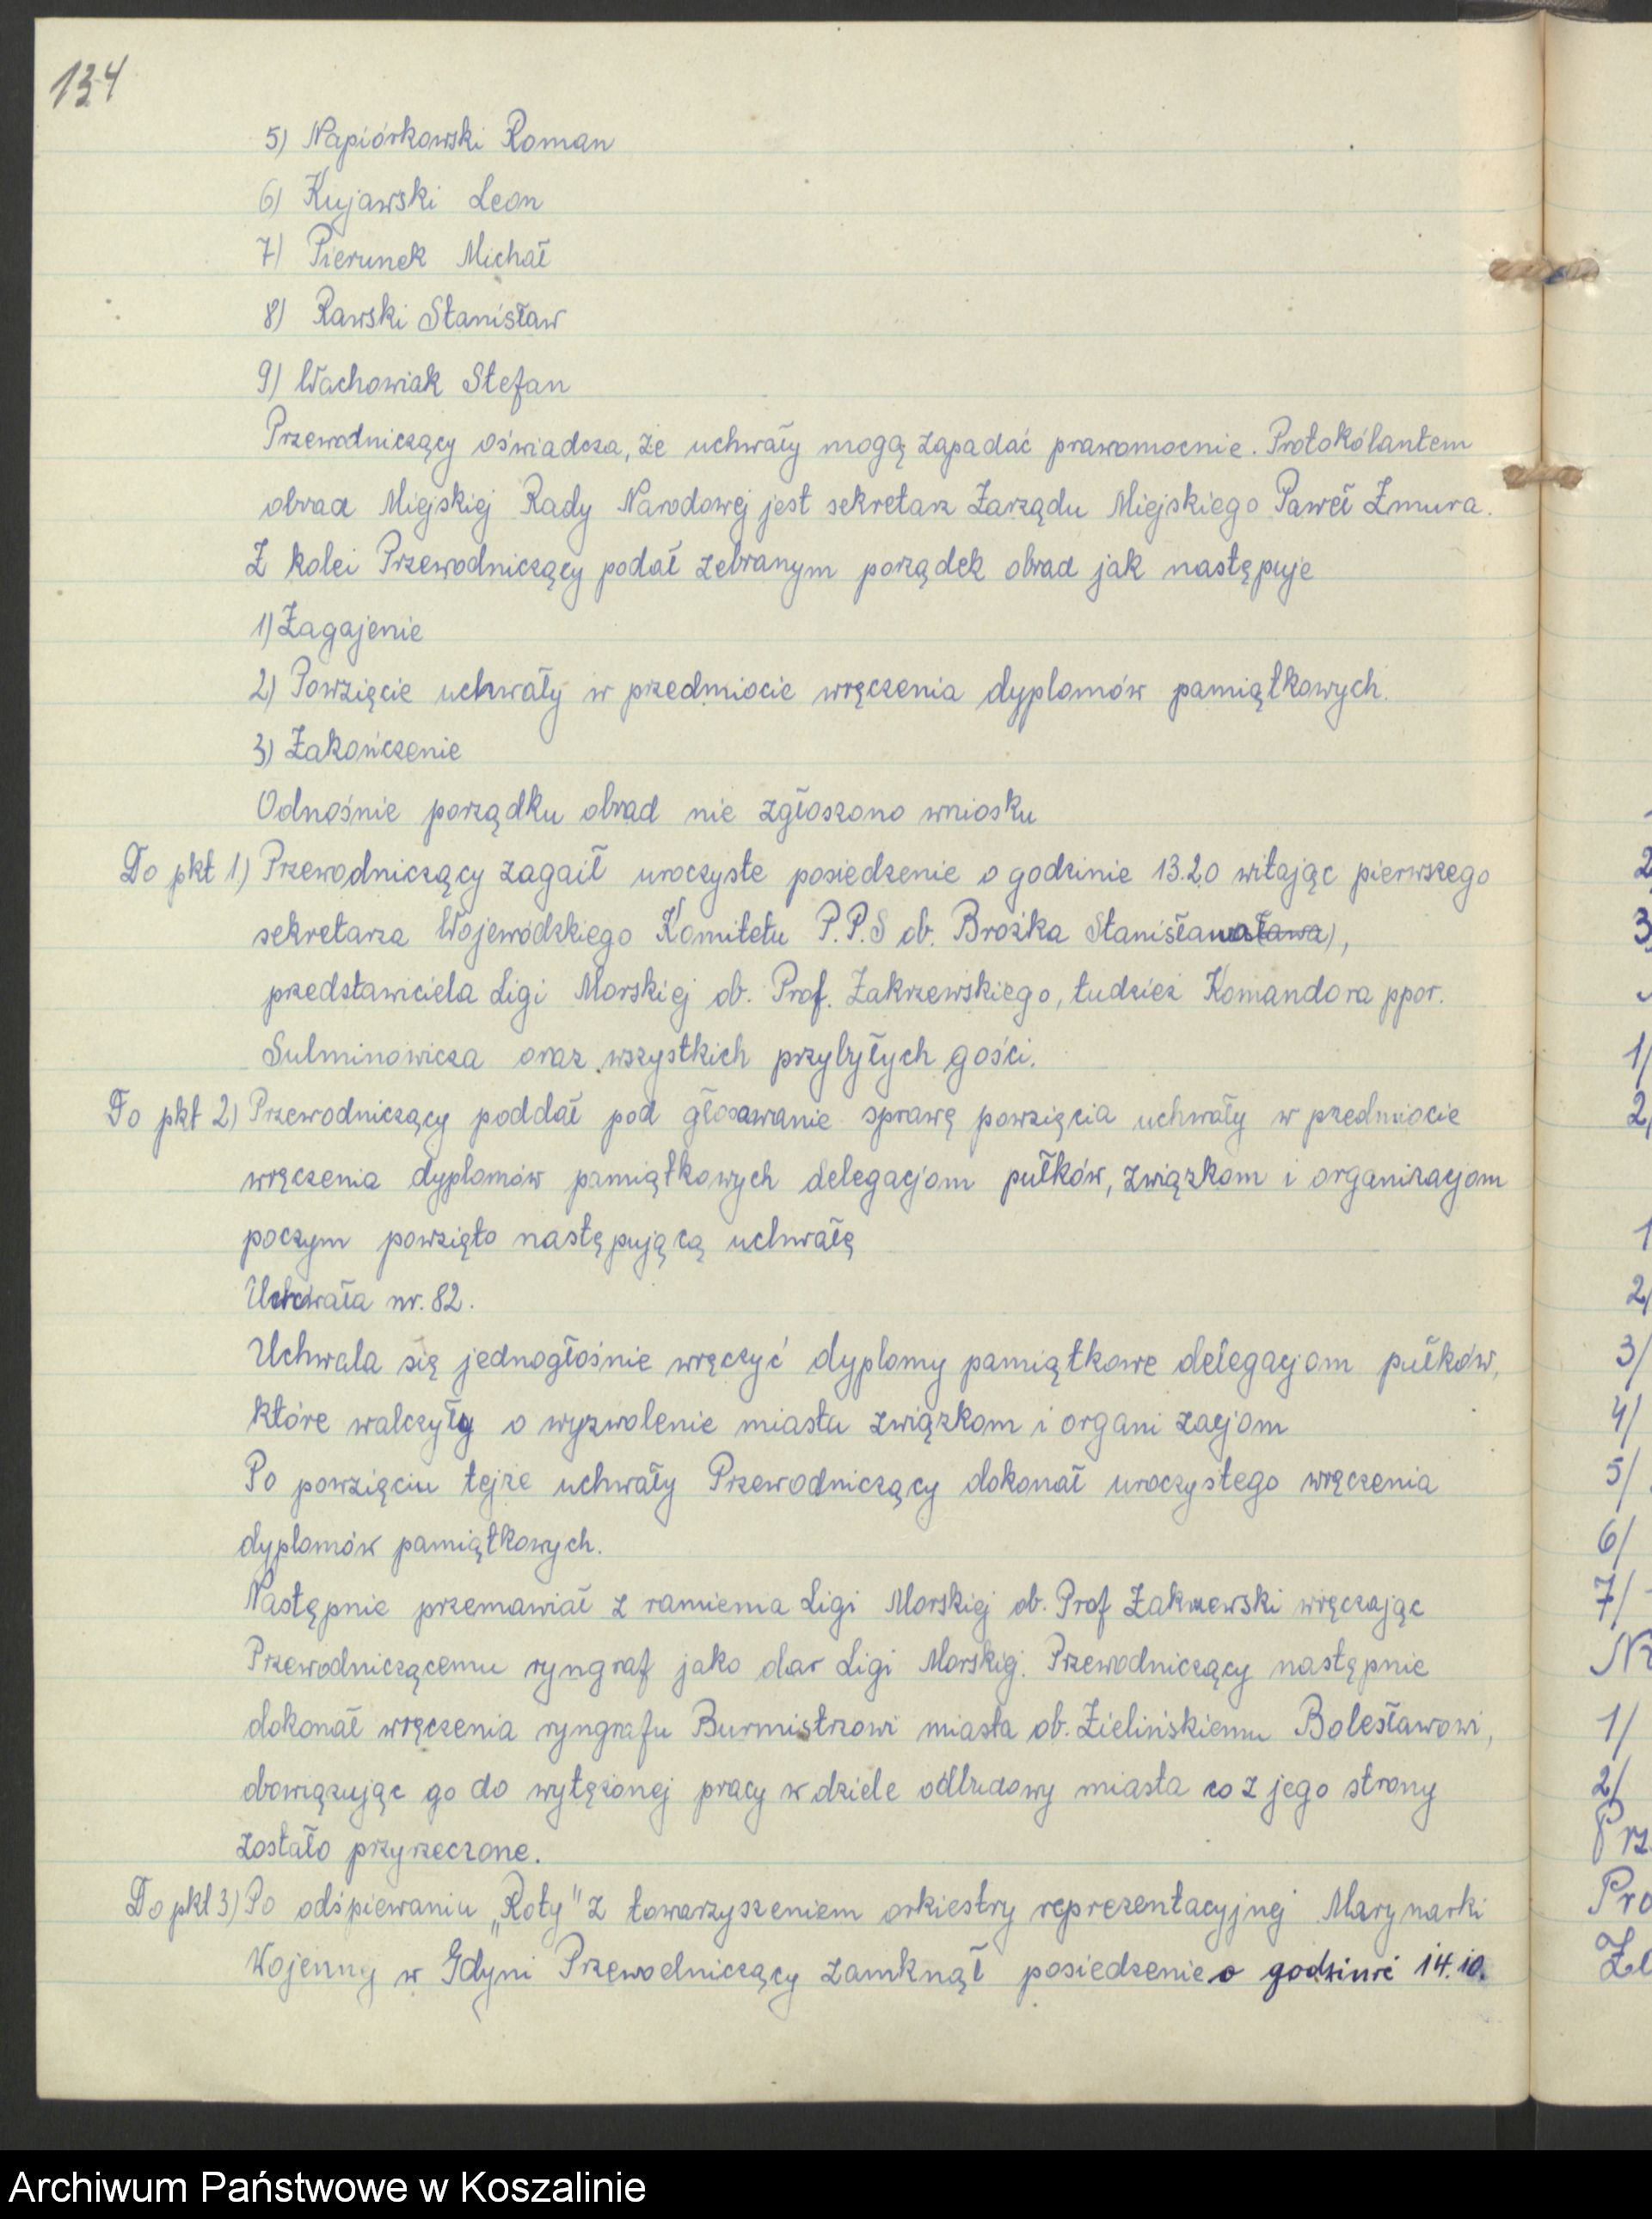 134
5) Napiórkowski Roman
6) Kujawski Leon
7) Pierunek Michał
8) Rawski Stanisław
9) Wachowiak Stefan
Przewodniczący oświadcza, że uchwały mogą zapadać prawomocnie. Protokólantem
obrad Miejskiej Rady Narodowej jest sekretarz Zarządu Miejskiego Paweł Zmura.
Z kolei Przewodniczący podał zebranym porządek obrad jak następuje
1) Zagajenie
2) Powzięcie uchwały w przedmiocie wręczenia dyplomów pamiątkowych.
3) Zakończenie
Odnośnie porządku obrad nie zgłoszono wniosku
Do pkt 1) Przewodniczący zagaił uroczyste posiedzenie o godzinie 13.20 witając pierwszego
sekretarza Wojewódzkiego Komitetu P.P.S ob. Brożka Stanisława),
przedstawiciela Ligi Morskiej ob. Prof. Zakrzewskiego, tudzież Komandora ppor.
Sulminowicza oraz wszystkich przybyłych gości.
Do pkt 2) Przewodniczący poddał pod głosowanie sprawę powzięcia uchwały w przedmiocie
wręczenia dyplomów pamiątkowych delegacjom pułków, związkom i organizacjom
poczym powzięto następującą uchwałę
Uchwała nr. 82.
Uchwala się jednogłośnie wręczyć dyplomy pamiątkowe delegacjom pułków,
które walczyły o wyzwolenie miasta związkom i organizacjom
Po powzięciu tejże uchwały Przewodniczący dokonał uroczystego wręczenia
dyplomów pamiątkowych.
Następnie przemawiał z ramienia Ligi Morskiej ob. Prof Zakrzewski wręczając
Przewodniczącemu ryngraf jako dar Ligi Morskiej. Przewodniczący następnie
dokonał wręczenia ryngrafu Burmistrzowi miasta ob. Zielińskiemu Bolesławowi,
obowiązując go do wytężonej pracy w dziele odbudowy miasta co z jego strony
zostało przyrzeczone.
Do pkt 3) Po odśpiewaniu „Roty" z towarzyszeniem orkiestry reprezentacyjnej Marynarki
Wojennej w Gdyni Przewodniczący zamknął posiedzenie o godzinie 14.10.
Archiwum Państwowe w Koszalinie